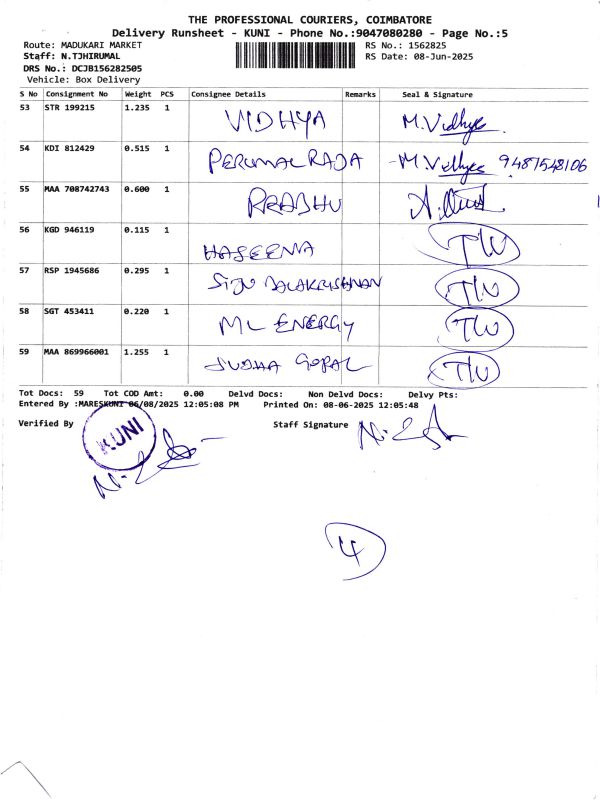 THE PROFESSIONAL COURIERS, COIMBATORE
Delivery Runsheet - KUNI - Phone No.:9047080280 - Page No.:5
Route: MADUKARI MARKET RS No.: 1562825
Staff: N.TJHIRUMAL RS Date: 08-Jun-2025
DRS No.: DCJB156282505
Vehicle: Box Delivery
S No Consignment No Weight PCS Consignee Details Remarks Seal & Signature
53 STR 199215 1.235 1 VIDHYA M.Vidhya
54 KDI 812429 0.515 1 PERUMAL RAJA M.Vidhya 9487548106
55 MAA 708742743 0.600 1 PRABHU
56 KGD 946119 0.115 1 HASEENA
57 RSP 1945686 0.295 1 SIJU BALAKRISHNAN
58 SGT 453411 0.220 1 ML ENERGY
59 MAA 869966001 1.255 1 SUDHA GOPAL
Tot Docs: 59 Tot COD Amt: 0.00 Delvd Docs: Non Delvd Docs: Delvy Pts:
Entered By :MARESKUNI 06/08/2025 12:05:08 PM Printed On: 08-06-2025 12:05:48
Verified By Staff Signature
KUNI
4